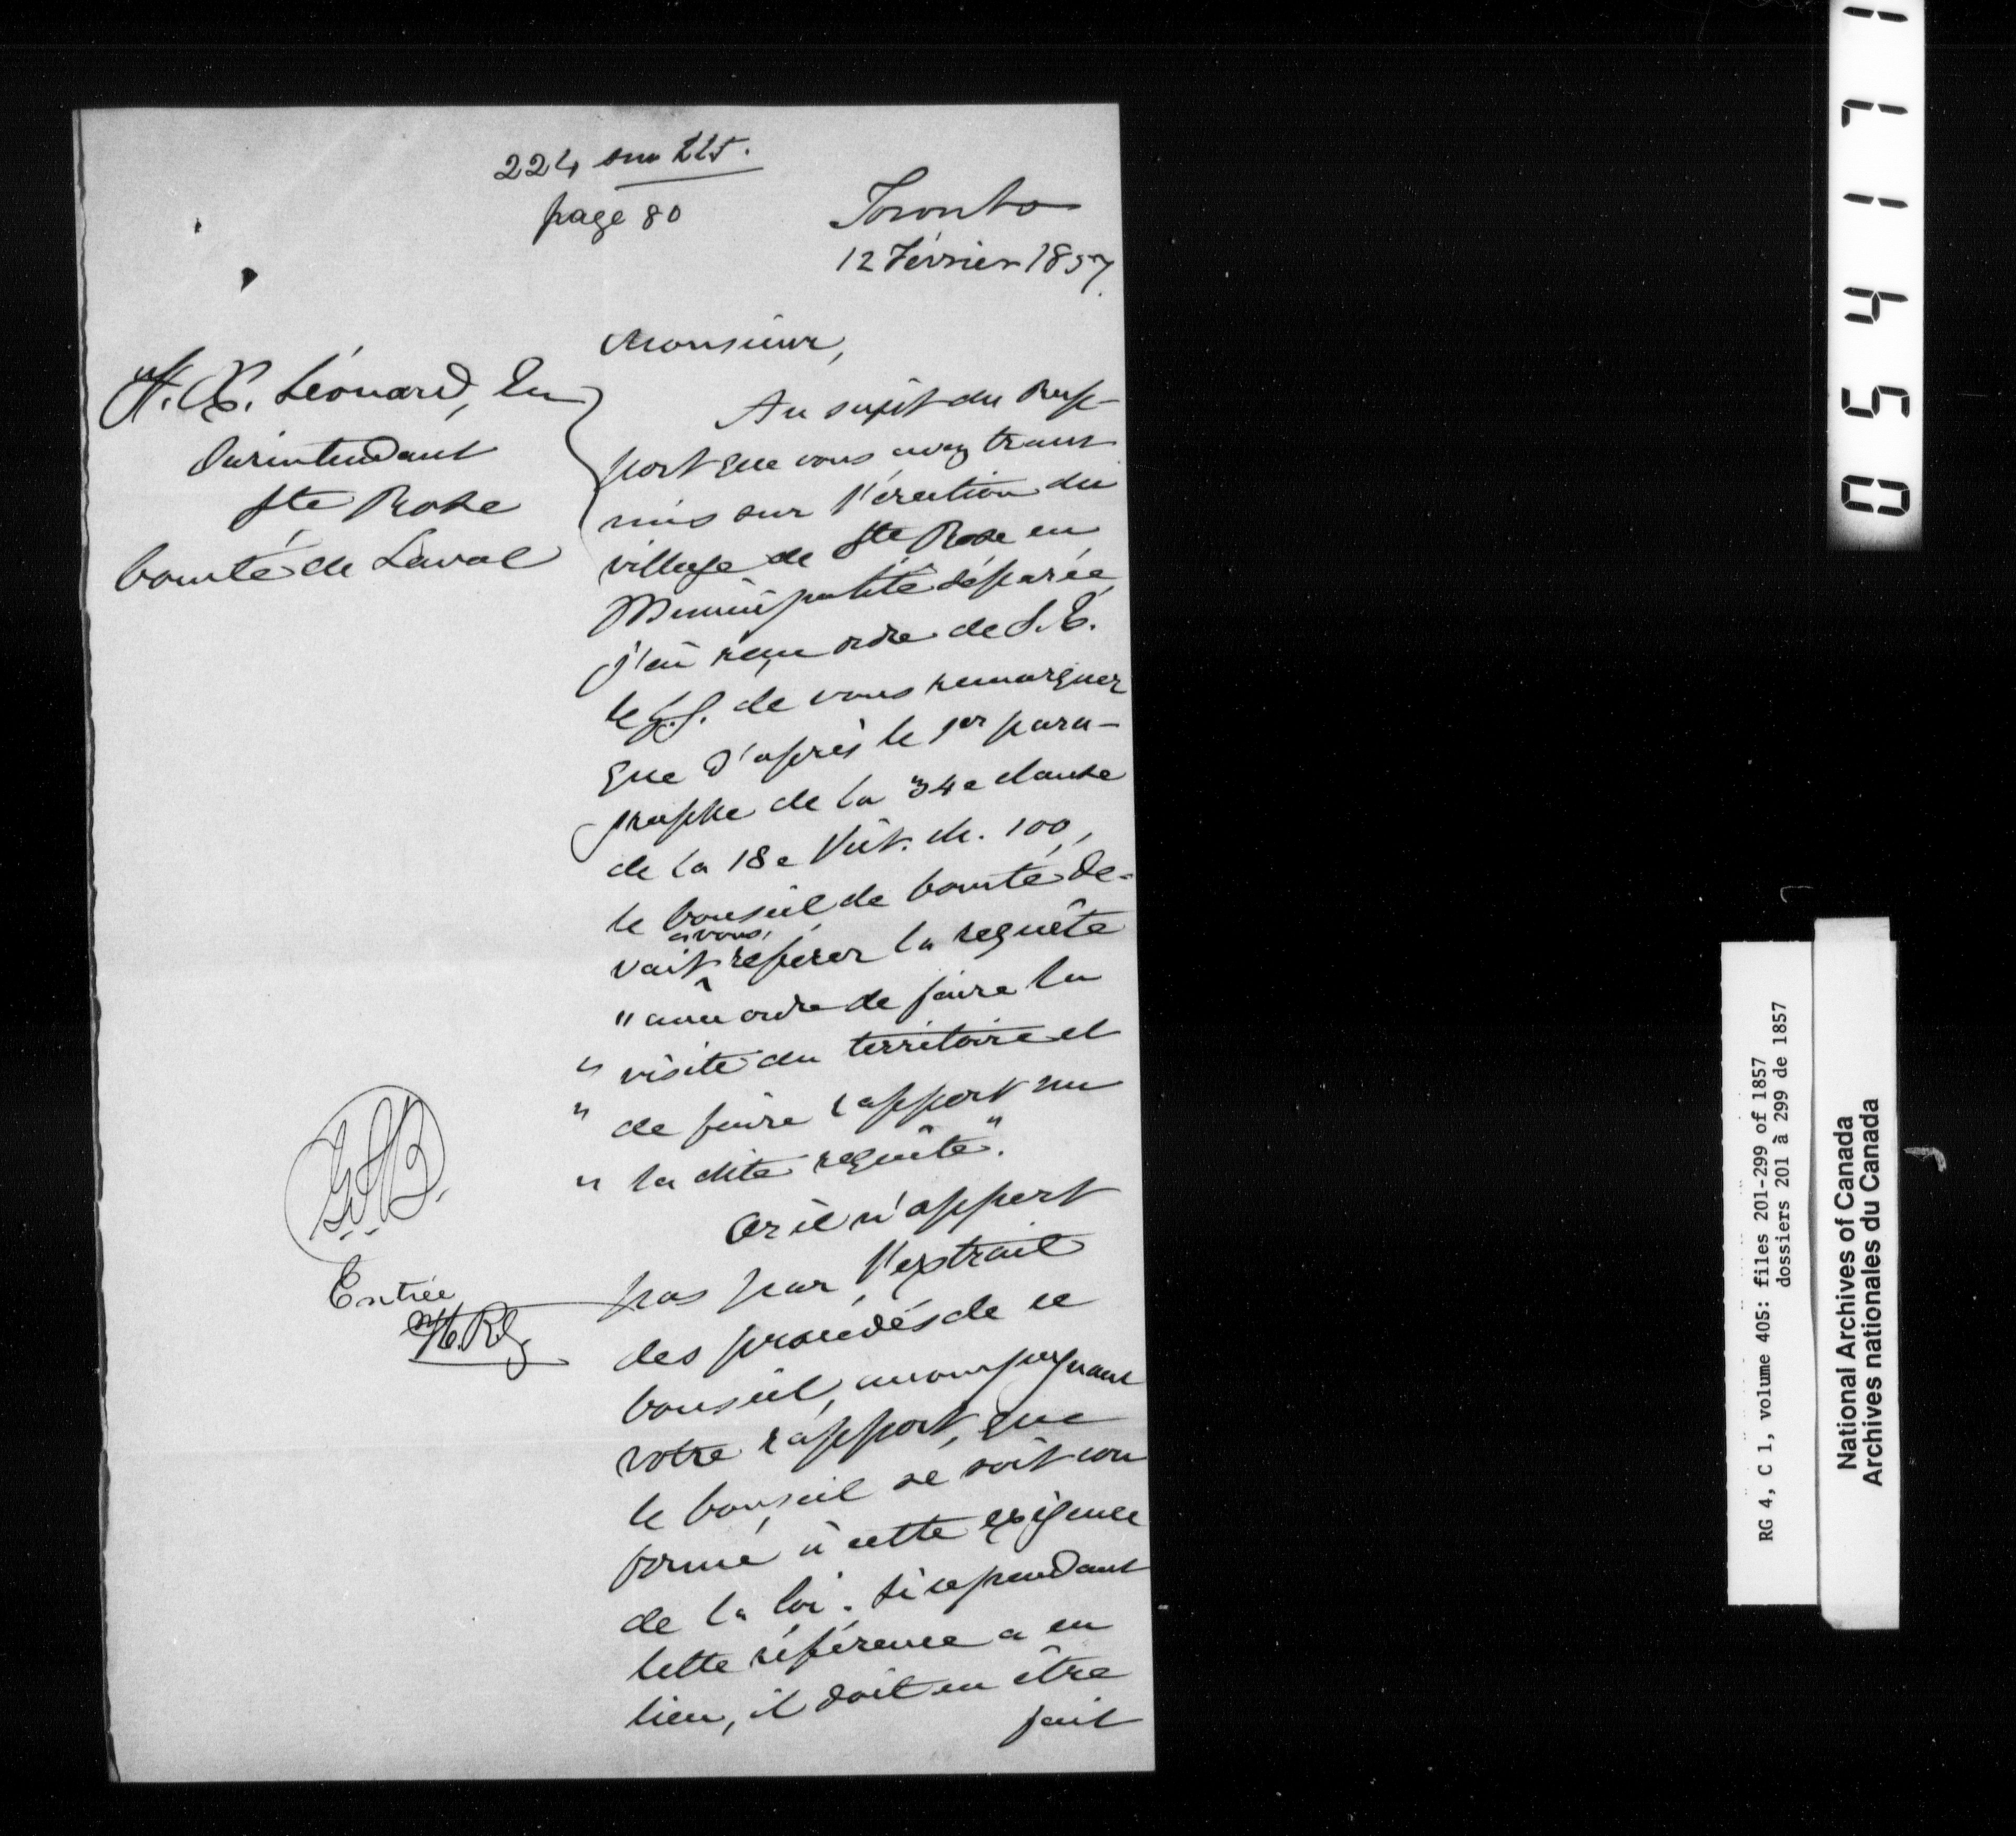 224 sur 225.
page 80
Toronto
12 Février 1857.
Monsieur,
Léonard, Eur
Surintendant
Ste Rose
Comté de Laval
Au sujet du Rap-
port que vous avez trans
mis sur l'érection du
village de Ste Rose en
Municipalité séparée,
j'ai reçu ordre de S. E.
le G. G. de vous remarquer
que d'après le 1er para-
graphe de la 34e clause
de la 18e Vict. ch. 100,
le Conseil de Comté de-
vait à vous référer la requête
" avec ordre de faire la
" visite du territoire et
" de faire rapport sur
" la dite requête".
Or il n'appert
pas par l'extrait
des procédés de ce
Conseil, accompagnant
votre rapport, que
le Conseil se soit con
formé à cette exigence
de la loi. Si cependant
cette référence a eu
lieu, il doit en être
fait
Entrée
0 5 4 1 7 1
RG 4, C 1, volume 405: files 201-299 of 1857
dossiers 201 à 299 de 1857
National Archives of Canada
Archives nationales du Canada